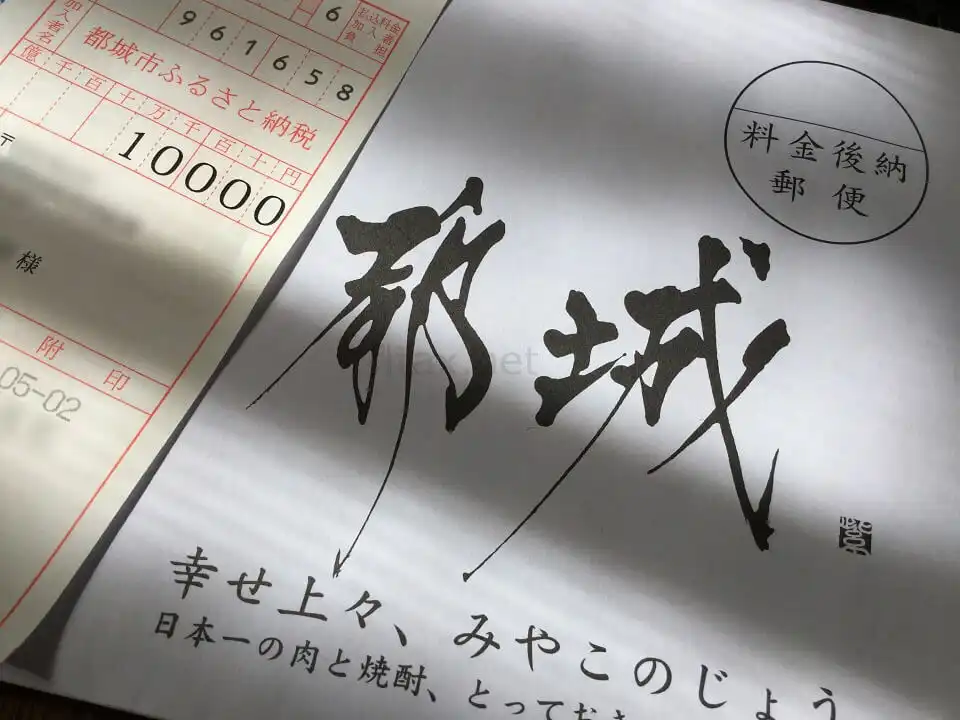 加入者名
961658
6
払込料金加入者負担
都城市ふるさと納税
億千百十万千百十円
10000
〒
様
附印
05-02
料金後納
郵便
都城
幸せ上々、みやこのじょう
日本一の肉と焼酎、とってお